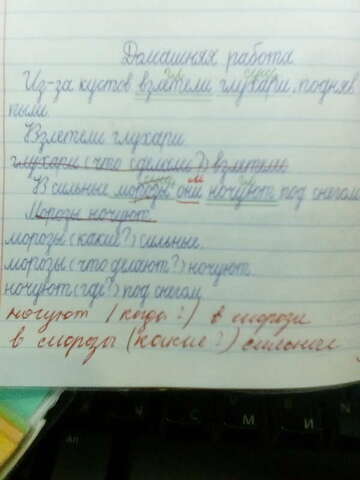 Домашняя работа
Из-за кустов взлетели глухари, подняв
пыли.
Взлетели глухари.
глухари (что сделали?) взлетели
В сильные морозы они ночуют под снегом
Морозы ночуют.
морозы (какие?) сильные.
морозы (что делают?) ночуют.
ночуют (где?) под снегом
ночуют (когда?) в морозы
в морозы (какие?) сильные